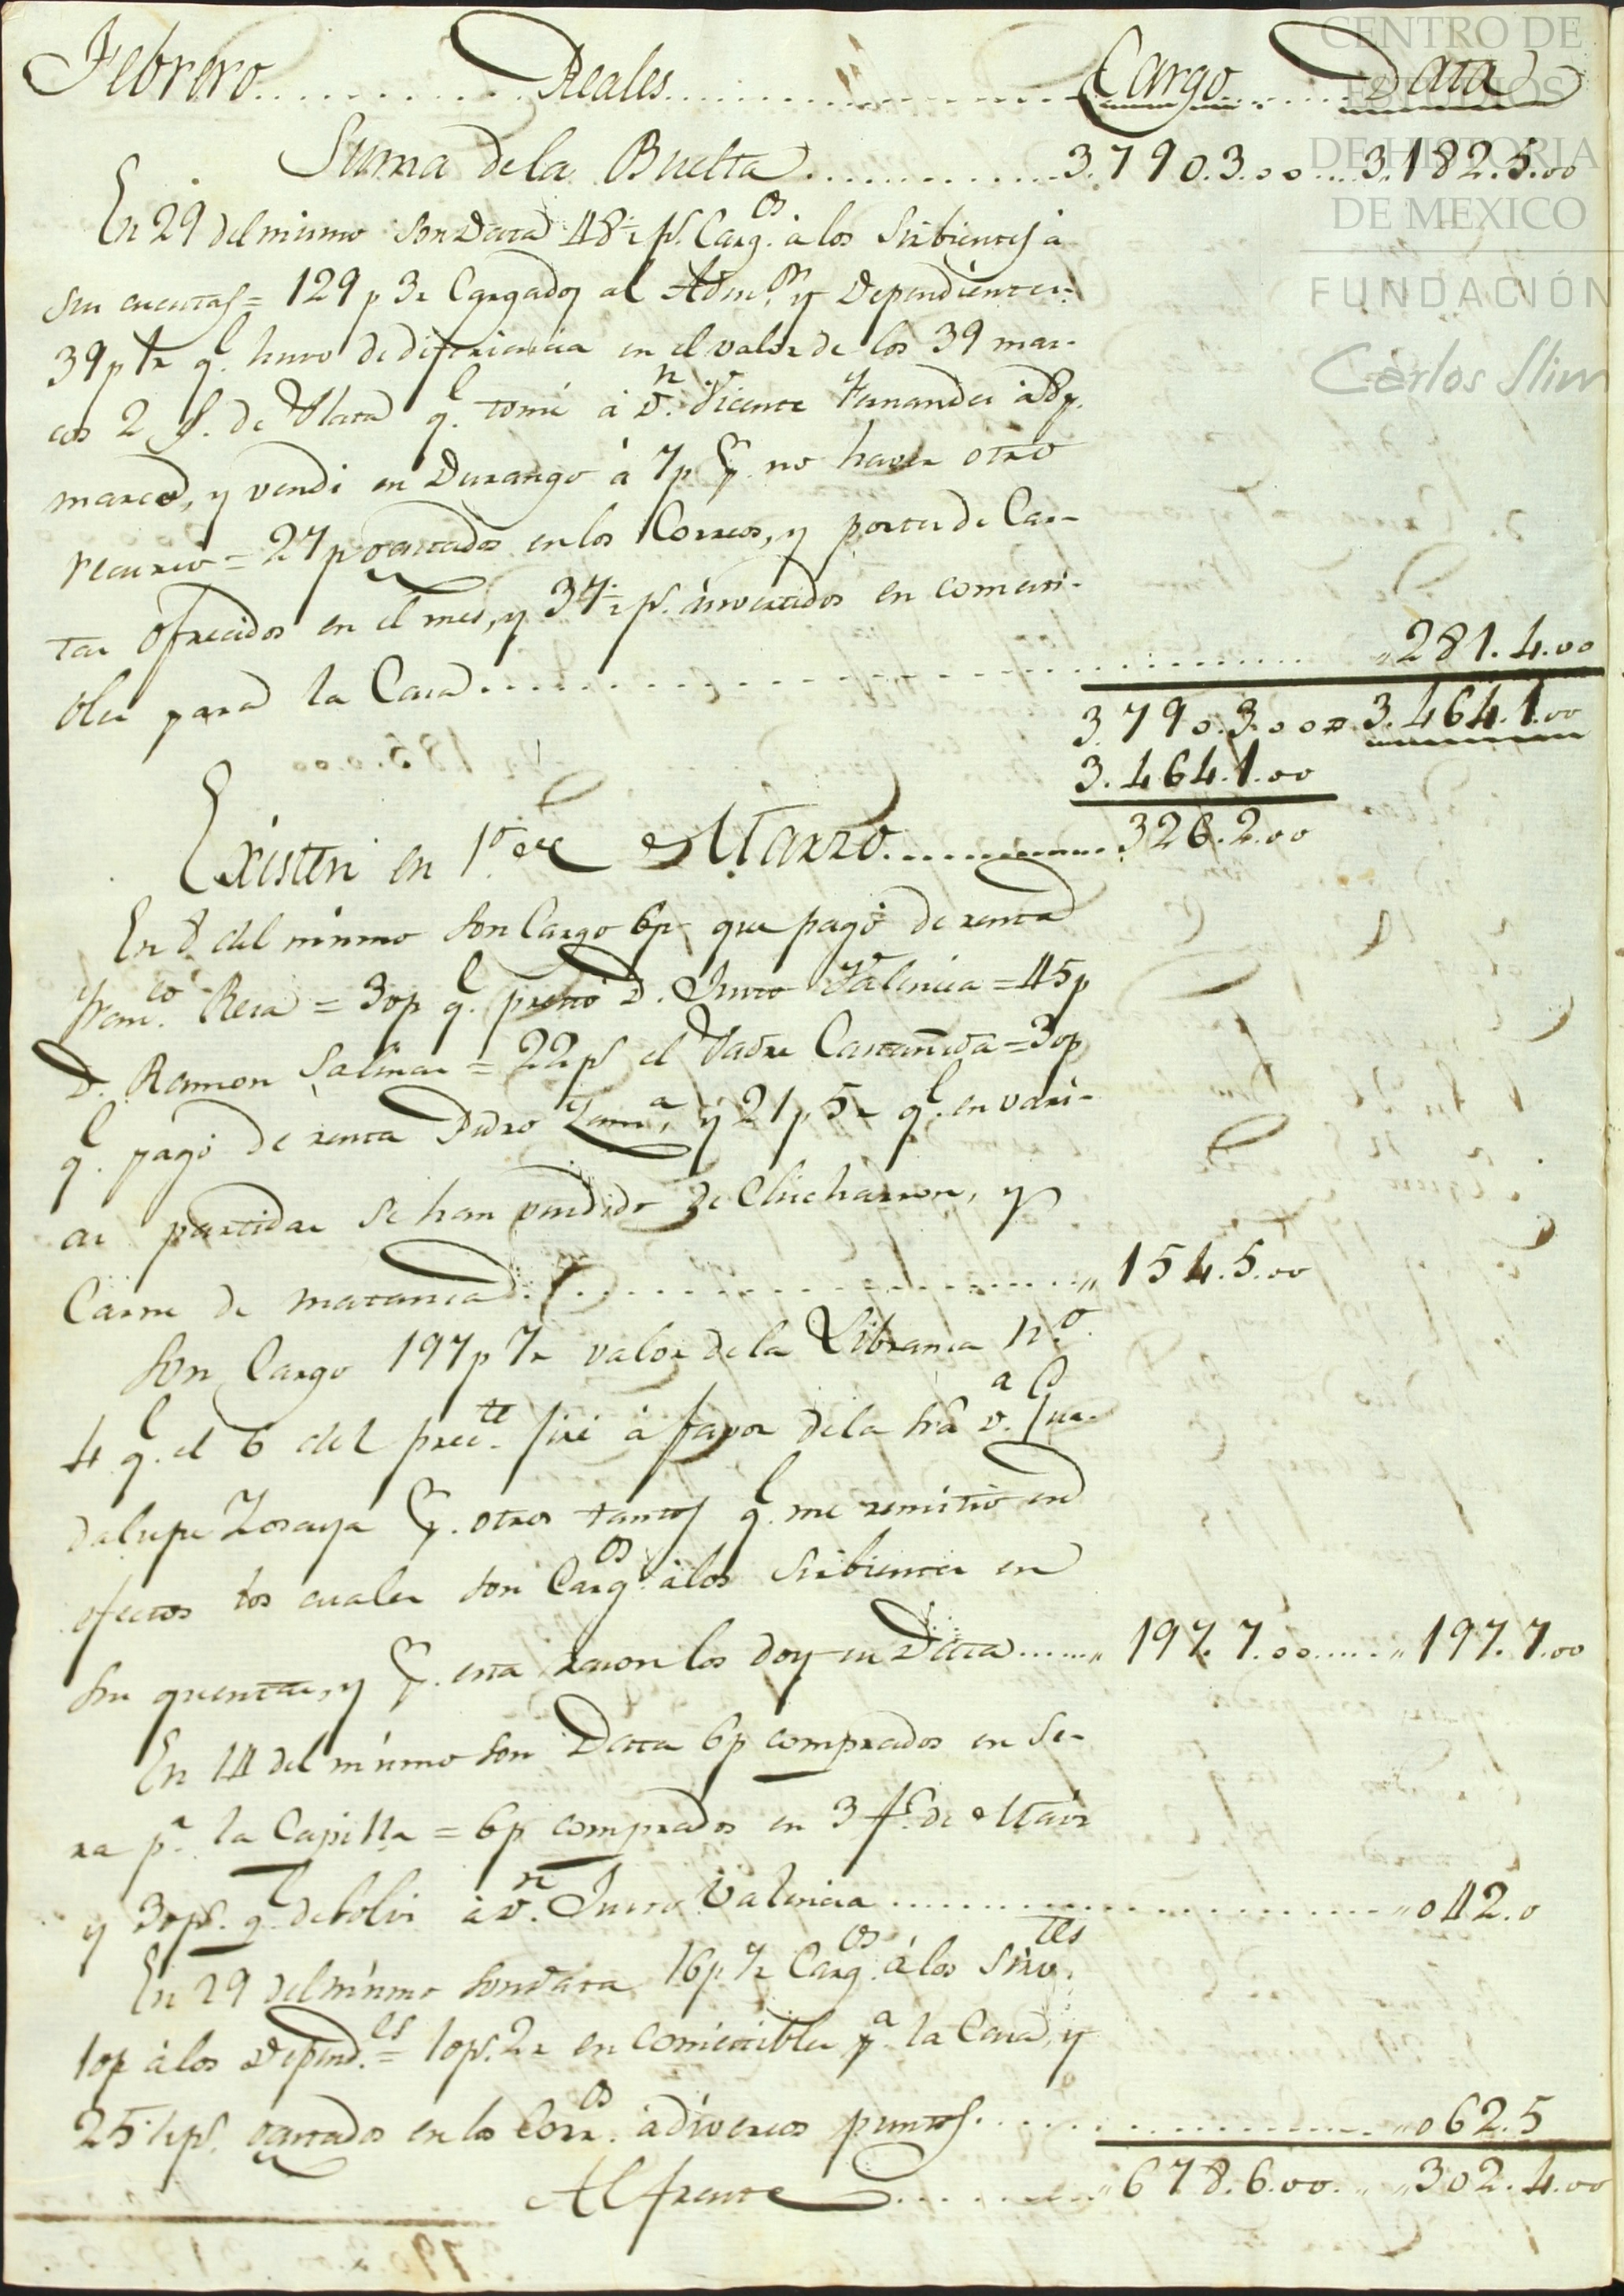 CENTRO DE
ESTUDIOS
DE HISTORIA
DE MEXICO
FUNDACIÓN
Carlos Slim
Febrero ............ Reales ................ Cargo ..... Data
Suma dela Buelta ............ 3.790.3.00 .... 3.182.5.00
En 29 del mismo son Data 48½ ps. Cargos. á los Sirbientes á
sus cuentas = 129 p 3 r Cargados al Admor. y Dependientes =
39 p r ql. huvo de diferiencia en el valor de los 39 mar-
cos 2 de Plata ql. tomé á Dn. Vicente Fernandez á 8 p.
marco, y vendi en Durango á 7 p pr. no haver otro
recurso = 27 p gastados en los Correos, y portes de Car-
tas ofrecidos en el mes, y 37½ ps. invertidos en comesti-
bles para la Casa ............ 281.4.00
3.790.3.00 = 3.464.1.00
3.464.1.00
Existen en 1º de Marzo ............ 326.2.00
En 8 del mismo son Cargo 6 p que pagó de renta
Franco. Resa = 30 p ql. prestó D. Justo Valencia = 45 p
D. Ramon Salinas = 22 ps el Padre Castañeda = 30 p
ql. pagó de renta Pedro y 21 p 5 r ql. en vari-
as partidas se han vendido de Chicharron, y
Carne de matanza ............ 154.5.00
Son Cargo 197 p 7 r valor de la Libranza No.
4 ql. el 6 del preste. jiré á favor dela Sra Da. Gua-
dalupe Losaya pr. otros tantos ql. me remitió en
efectos los cuales son Cargos. á los Sirbientes en
sus quentas, y pr. esta razon los doy en Data ...... 197.7.00 ..... 197.7.00
En 14 del mismo son Data 6 p comprados en Se-
ra pa. la Capilla = 6 p comprados en 3 fs. de Maiz
y 30 ps. ql. debolvi á Dn. Justo Valencia ............ 042.0
En 29 del mismo son Data 16 p. 7 r Cargos. á los Sirvtes.
10 p á los Depend.es = 10 ps. 2 r en comestibles pa. la Casa, y
25½ ps. gastados en los Corros. á diversos puntos ............ 062.5
Al frente ............ 678.6.00. 302.4.00